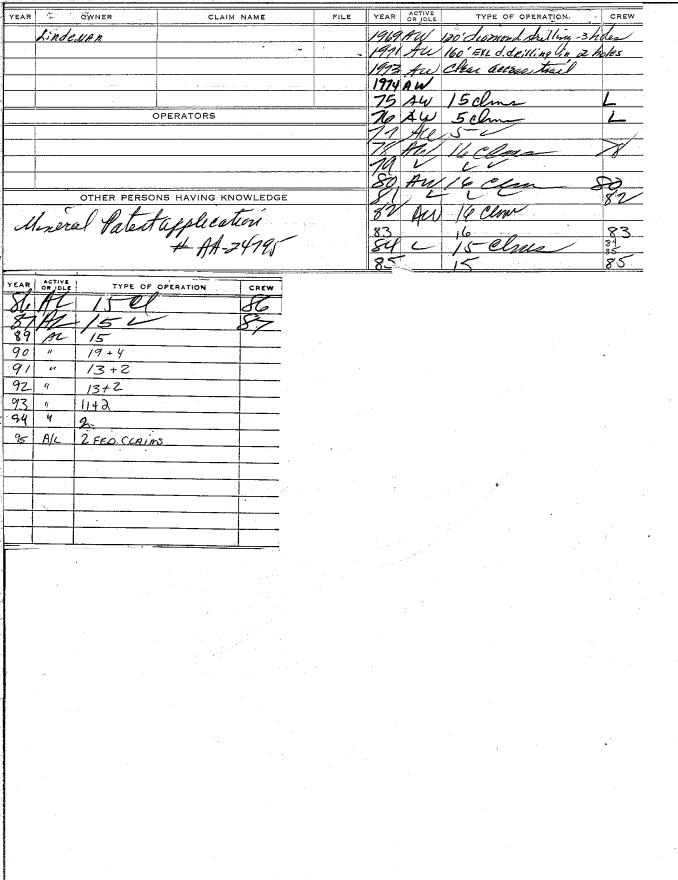 YEAR OWNER CLAIM NAME FILE
Lindeman
OPERATORS
OTHER PERSONS HAVING KNOWLEDGE
Mineral Patent application
# AA-24795
YEAR ACTIVE OR IDLE TYPE OF OPERATION CREW
1969 AW 120' diamond drilling - 3 holes
1971 AW 160' EXL d. drilling in 2 holes
1973 AW Clear access trail
1974 AW
75 AW 15 clms L
76 AW 5 clms L
77 AW 5 ✓
78 AW 16 Clms 78
79 ✓ ✓ ✓
80 AW 16 Clm 80
81 L L L
82 AW 16 Clm 82
83 16 83
84 L 15 Clms 84
85 15 85
YEAR ACTIVE OR IDLE TYPE OF OPERATION CREW
86 AL 15 Cl 86
87 AL 15 ✓ 87
89 AL 15
90 " 19+4
91 " 13+2
92 " 13+2
93 " 11+2
94 " 2
95 A/L 2 FED. CLAIMS